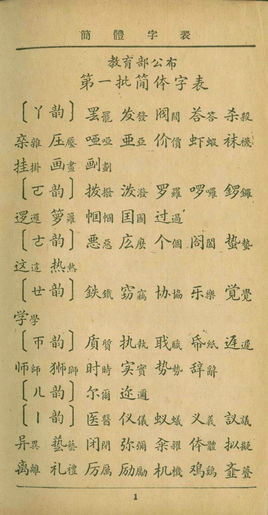 簡體字表
教育部公布
第一批简体字表
〔ㄚ韵〕罢罷 发發 阀閥 荅答 杀殺
杂雜 压壓 哑啞 亚亞 价價 虾蝦 袜襪
挂掛 画畫 划劃
〔ㄛ韵〕拨撥 泼潑 罗羅 啰囉 锣鑼
逻邏 箩籮 帼幗 国國 过過
〔ㄜ韵〕恶惡 庅麼 个個 阁閣 蛰蟄
这這 热熱
〔ㄝ韵〕鉄鐵 窃竊 协協 乐樂 觉覺
学學
〔ㄭ韵〕质質 执執 职職 帋紙 迟遲
师師 狮獅 时時 实實 势勢 辞辭
〔ㄦ韵〕尔爾 迩邇
〔ㄧ韵〕医醫 仪儀 蚁蟻 义義 议議
异異 艺藝 闭閉 弥彌 籴糴 体體 拟擬
离離 礼禮 厉厲 励勵 机機 鸡鷄
1